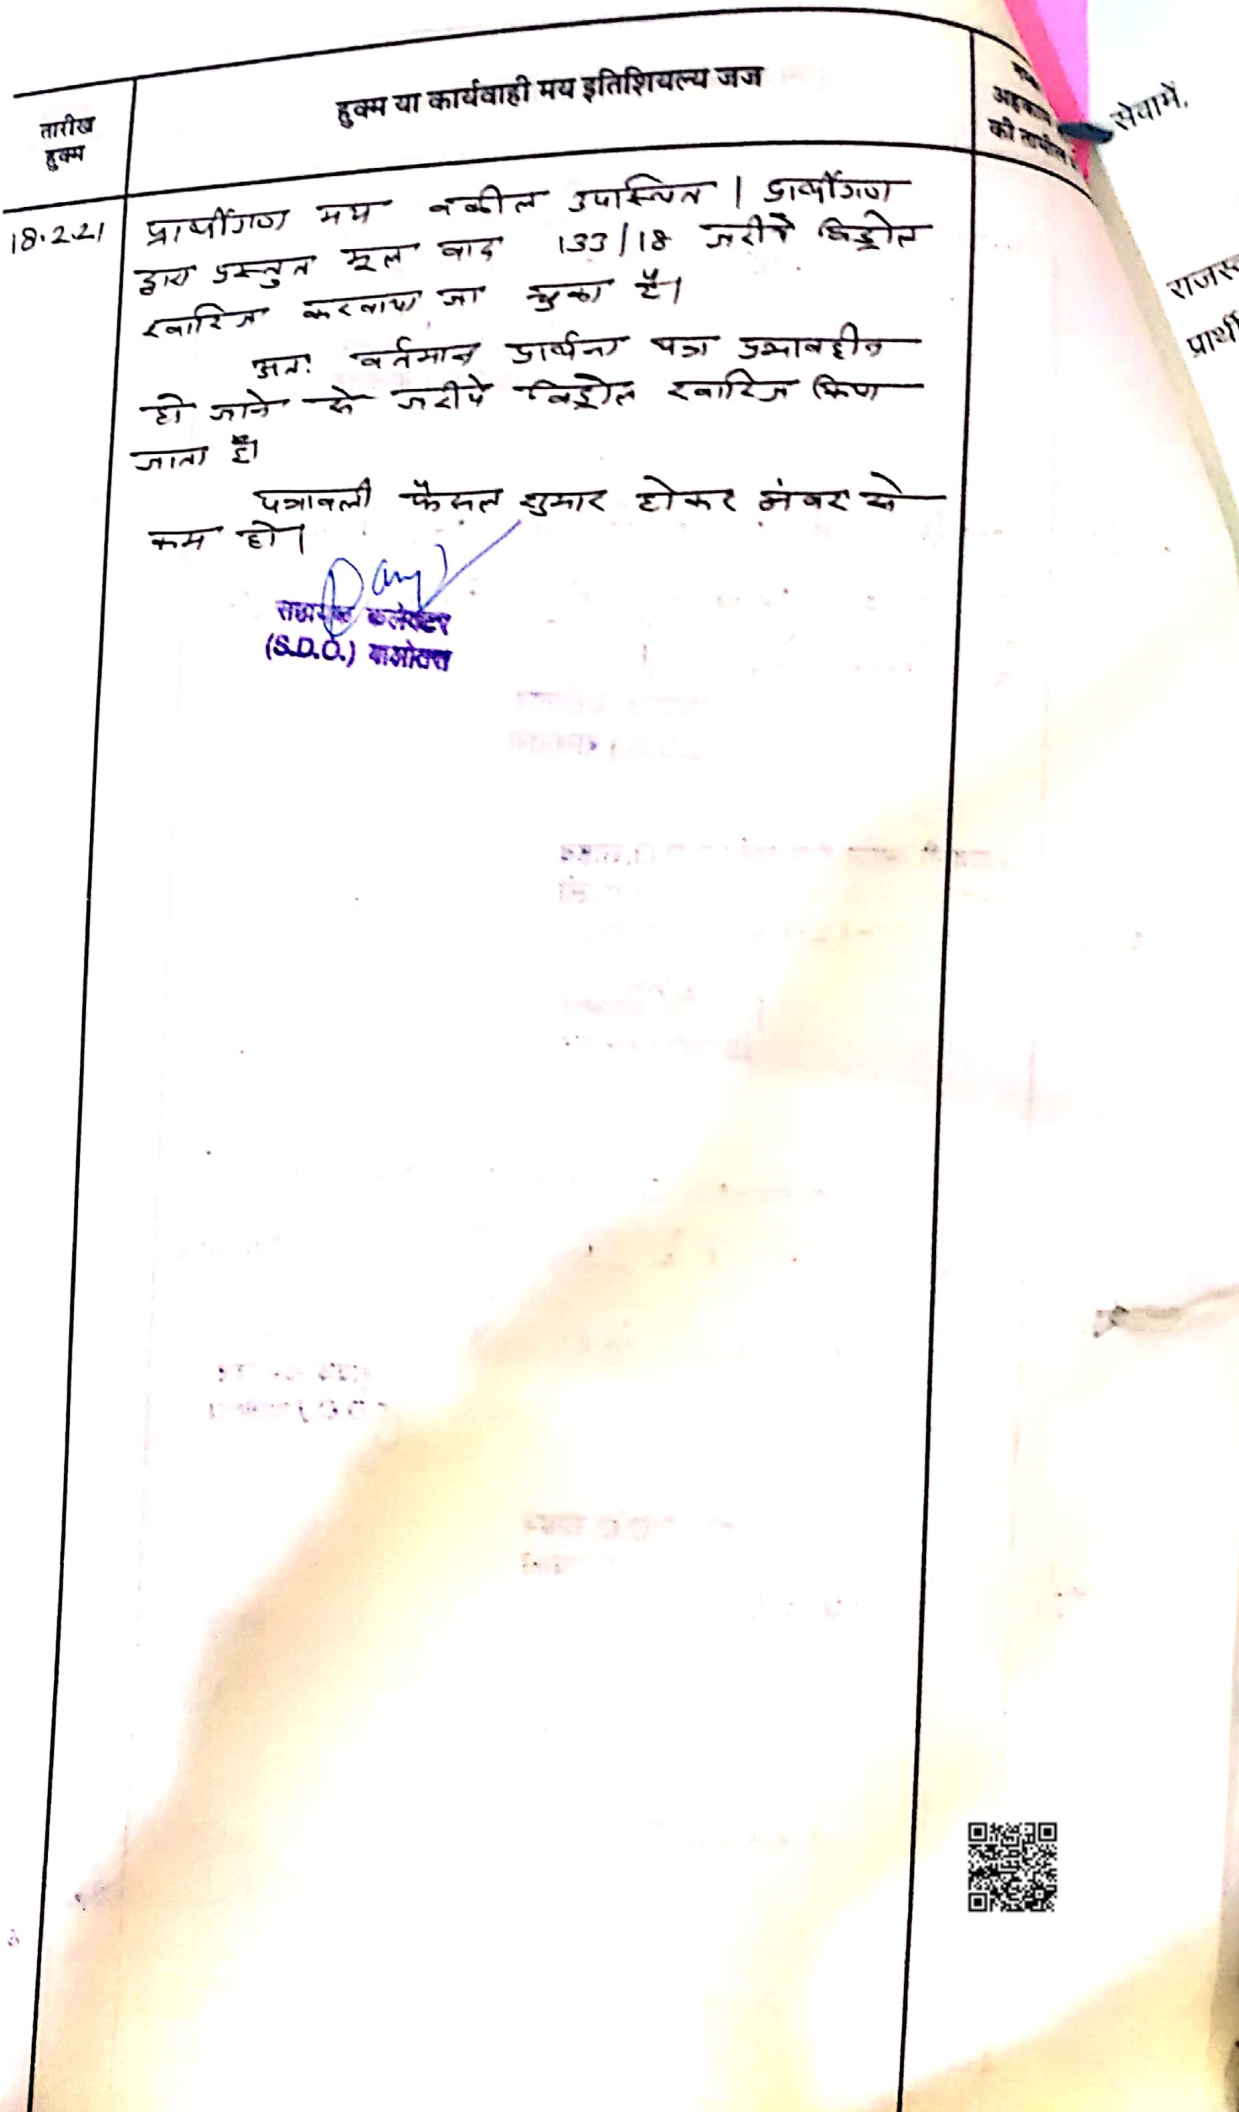 तारीख
हुक्म
हुक्म या कार्यवाही मय इतिशियल्य जज
अहकाम
की तामील
सेवामें,
18.2.21
प्रार्थीगण मय वकील उपस्थित । प्रार्थीगण
द्वारा प्रस्तुत मूल वाद 133/18 जरीये विड्रोल
खारिज करवाया जा चुका है।
अतः वर्तमान प्रार्थना पत्र प्रभावहीन
हो जाने से जरीये विड्रोल खारिज किया
जाता है।
पत्रावली फैसल शुमार होकर नंबर से
कम हो।
सहायक कलेक्टर
(S.D.O.)
राजस्
प्रार्थी